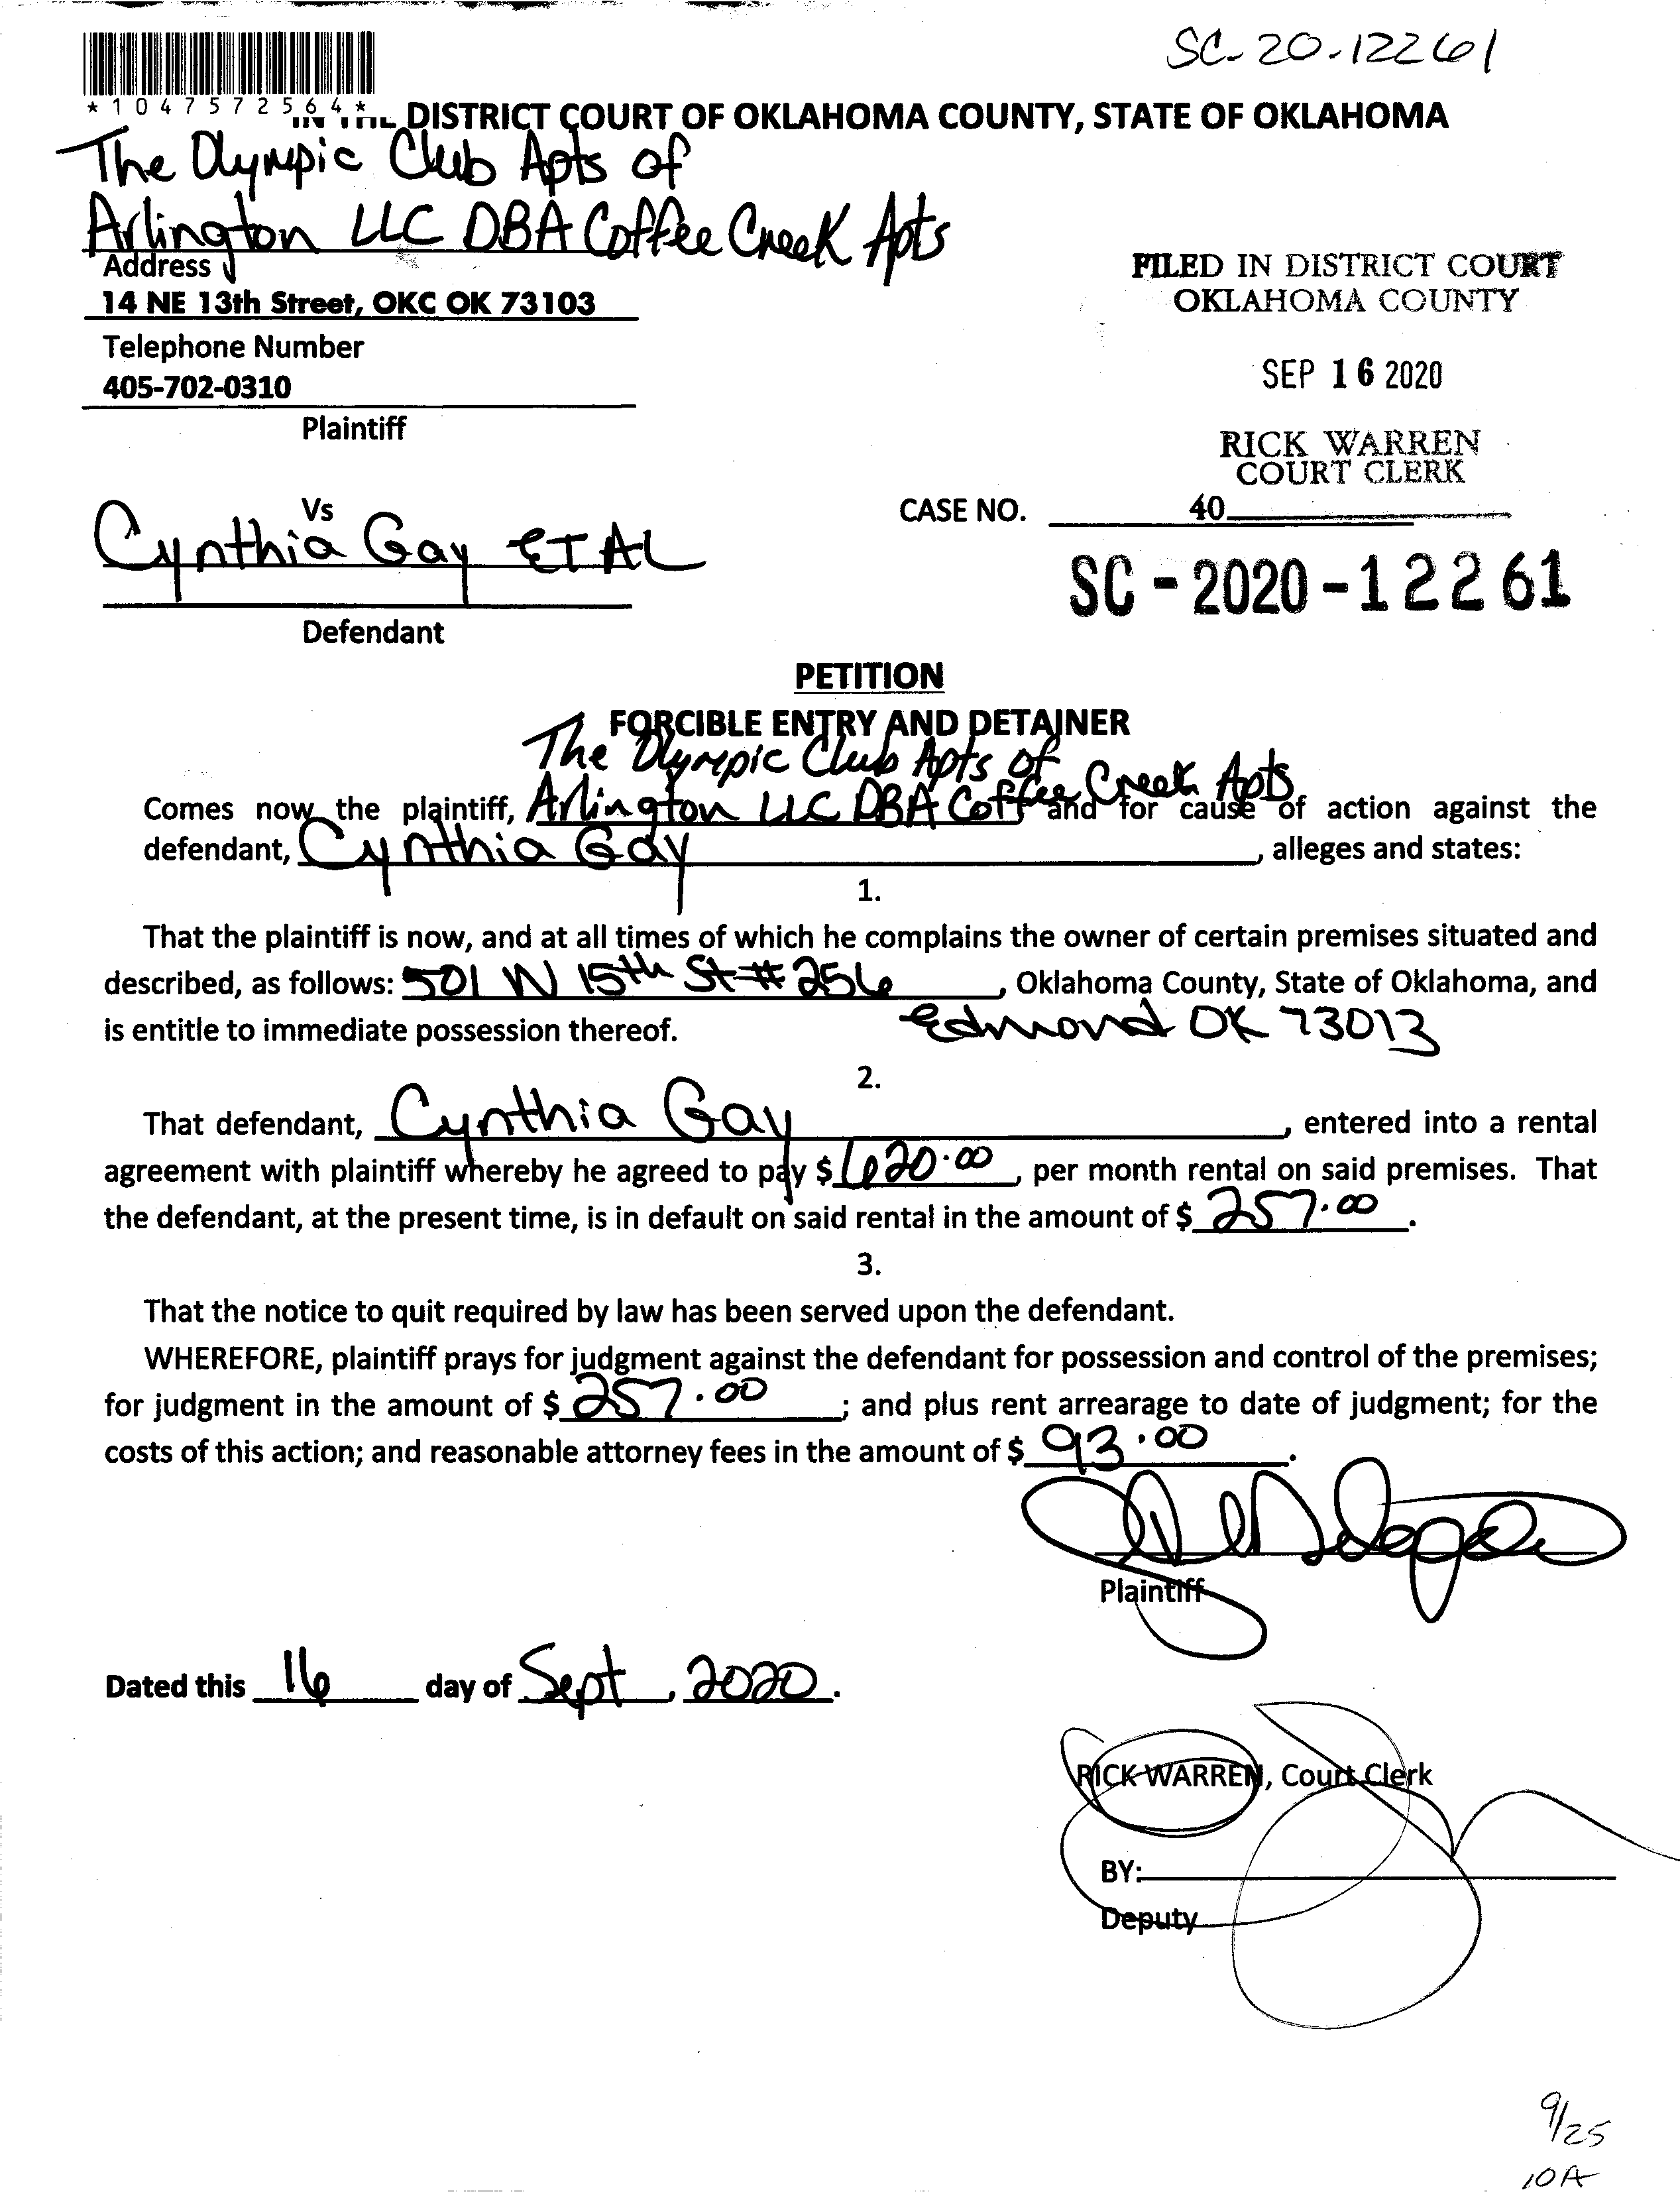 SC-20-12261
*1047572564*
IN THE DISTRICT COURT OF OKLAHOMA COUNTY, STATE OF OKLAHOMA
The Olympic Club Apts of
Arlington LLC DBA Coffee Creek Apts
Address
14 NE 13th Street, OKC OK 73103
Telephone Number
405-702-0310
Plaintiff
FILED IN DISTRICT COURT
OKLAHOMA COUNTY
SEP 16 2020
RICK WARREN
COURT CLERK
Vs
CASE NO. 40
Cynthia Gay ET AL
SC-2020-12261
Defendant
PETITION
FORCIBLE ENTRY AND DETAINER
The Olympic Club Apts of
Comes now the plaintiff, Arlington LLC DBA Coffee Creek Apts and for cause of action against the
defendant, Cynthia Gay, alleges and states:
1.
That the plaintiff is now, and at all times of which he complains the owner of certain premises situated and
described, as follows: 501 W 15th St #256, Oklahoma County, State of Oklahoma, and
is entitle to immediate possession thereof. Edmond OK 73013
2.
That defendant, Cynthia Gay, entered into a rental
agreement with plaintiff whereby he agreed to pay $620.00, per month rental on said premises. That
the defendant, at the present time, is in default on said rental in the amount of $257.00.
3.
That the notice to quit required by law has been served upon the defendant.
WHEREFORE, plaintiff prays for judgment against the defendant for possession and control of the premises;
for judgment in the amount of $257.00; and plus rent arrearage to date of judgment; for the
costs of this action; and reasonable attorney fees in the amount of $93.00.
Plaintiff
Dated this 16 day of Sept, 2020.
RICK WARREN, Court Clerk
BY:
Deputy
9/25
10A